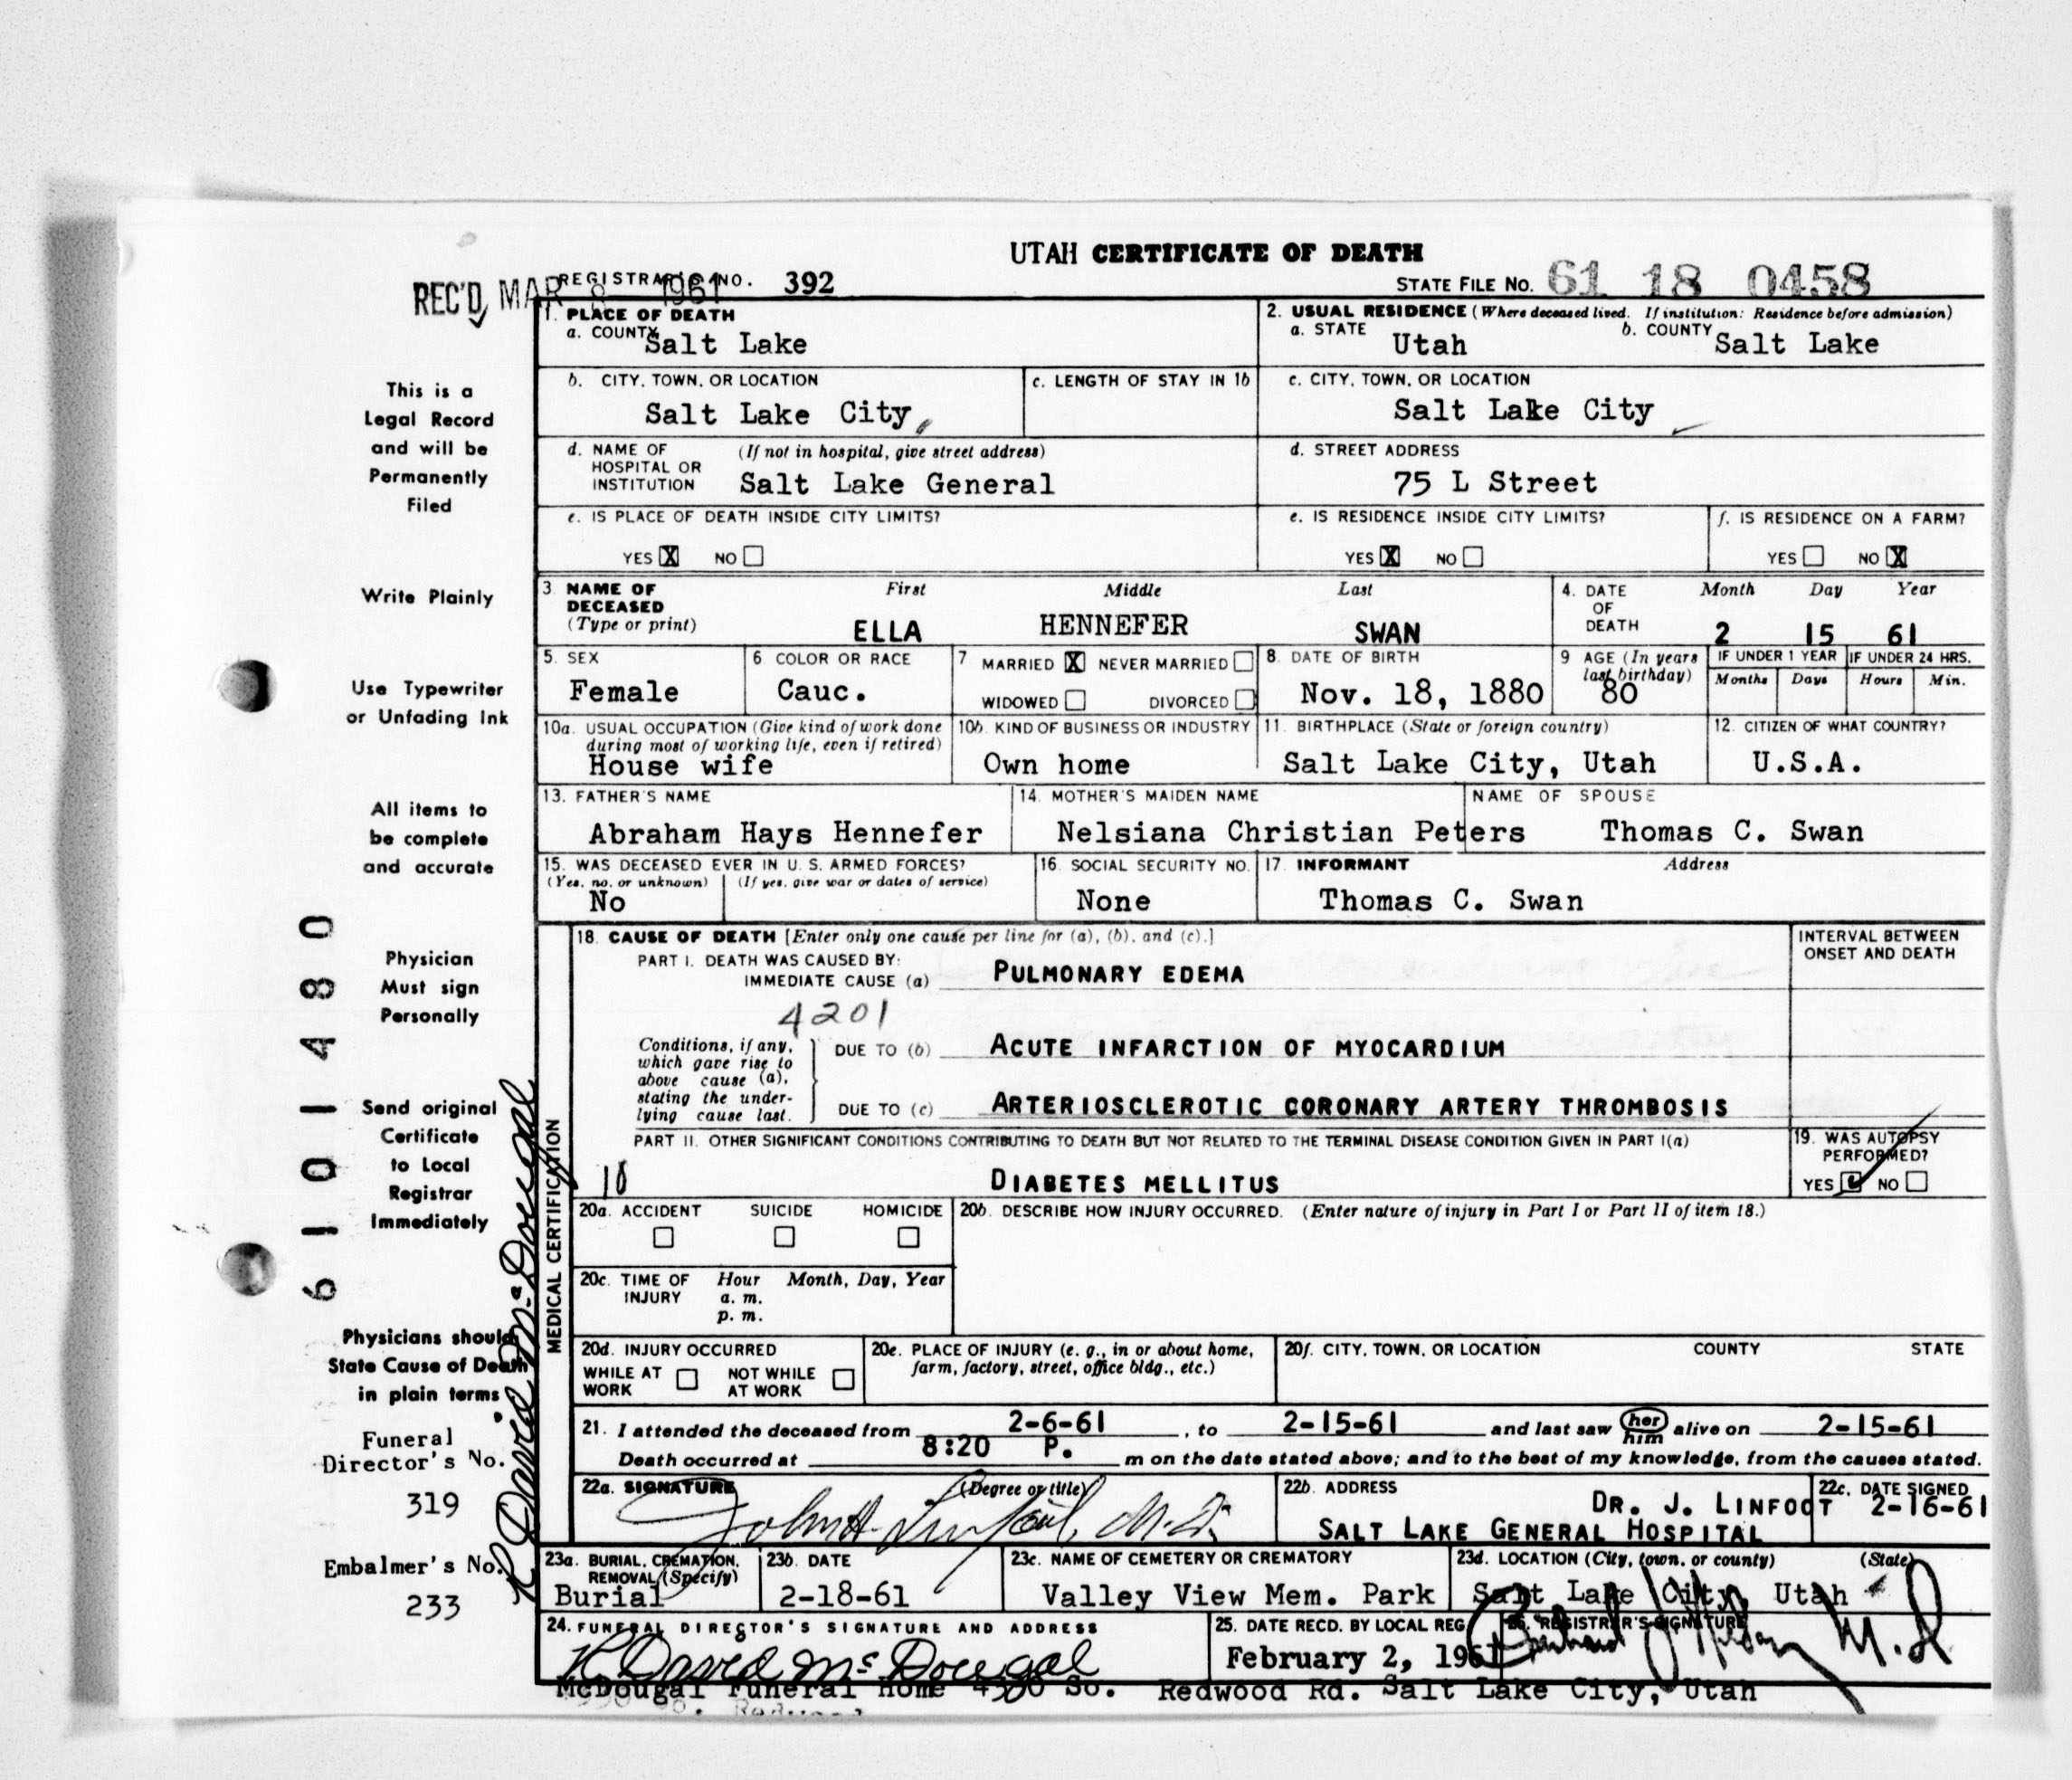 UTAH CERTIFICATE OF DEATH
REC'D MAR 8 1961 REGISTRAR'S NO. 392
STATE FILE NO. 61 18 0458
1. PLACE OF DEATH
a. COUNTY Salt Lake
2. USUAL RESIDENCE (Where deceased lived. If institution: Residence before admission)
a. STATE Utah b. COUNTY Salt Lake
b. CITY, TOWN, OR LOCATION Salt Lake City,
c. LENGTH OF STAY IN 1b
c. CITY, TOWN, OR LOCATION Salt Lake City
d. NAME OF HOSPITAL OR INSTITUTION (If not in hospital, give street address) Salt Lake General
d. STREET ADDRESS 75 L Street
e. IS PLACE OF DEATH INSIDE CITY LIMITS?
YES X NO
e. IS RESIDENCE INSIDE CITY LIMITS?
YES X NO
f. IS RESIDENCE ON A FARM?
YES NO X
3. NAME OF DECEASED (Type or print) First Middle Last
ELLA HENNEFER SWAN
4. DATE OF DEATH Month Day Year
2 15 61
5. SEX Female
6 COLOR OR RACE Cauc.
7 MARRIED X NEVER MARRIED
WIDOWED DIVORCED
8. DATE OF BIRTH Nov. 18, 1880
9 AGE (In years last birthday) 80
IF UNDER 1 YEAR Months Days
IF UNDER 24 HRS. Hours Min.
10a. USUAL OCCUPATION (Give kind of work done during most of working life, even if retired)
House wife
10b. KIND OF BUSINESS OR INDUSTRY
Own home
11. BIRTHPLACE (State or foreign country)
Salt Lake City, Utah
12. CITIZEN OF WHAT COUNTRY?
U.S.A.
13. FATHER'S NAME
Abraham Hays Hennefer
14. MOTHER'S MAIDEN NAME
Nelsiana Christian Peters
NAME OF SPOUSE
Thomas C. Swan
15. WAS DECEASED EVER IN U. S. ARMED FORCES?
(Yes, no, or unknown) (If yes, give war or dates of service)
No
16. SOCIAL SECURITY NO.
None
17. INFORMANT Address
Thomas C. Swan
MEDICAL CERTIFICATION
18. CAUSE OF DEATH [Enter only one cause per line for (a), (b), and (c).]
INTERVAL BETWEEN ONSET AND DEATH
PART I. DEATH WAS CAUSED BY:
IMMEDIATE CAUSE (a) PULMONARY EDEMA
4201
Conditions, if any, which gave rise to above cause (a), stating the underlying cause last.
DUE TO (b) ACUTE INFARCTION OF MYOCARDIUM
DUE TO (c) ARTERIOSCLEROTIC CORONARY ARTERY THROMBOSIS
PART II. OTHER SIGNIFICANT CONDITIONS CONTRIBUTING TO DEATH BUT NOT RELATED TO THE TERMINAL DISEASE CONDITION GIVEN IN PART I(a)
DIABETES MELLITUS
19. WAS AUTOPSY PERFORMED?
YES NO
20a. ACCIDENT SUICIDE HOMICIDE
20b. DESCRIBE HOW INJURY OCCURRED. (Enter nature of injury in Part I or Part II of item 18.)
20c. TIME OF INJURY Hour Month, Day, Year
a. m.
p. m.
20d. INJURY OCCURRED
WHILE AT WORK NOT WHILE AT WORK
20e. PLACE OF INJURY (e. g., in or about home, farm, factory, street, office bldg., etc.)
20f. CITY, TOWN, OR LOCATION COUNTY STATE
21. I attended the deceased from 2-6-61, to 2-15-61 and last saw her him alive on 2-15-61
Death occurred at 8:20 P. m on the date stated above; and to the best of my knowledge, from the causes stated.
22a. SIGNATURE (Degree or title)
John H. Linfoot, M.D.
22b. ADDRESS
DR. J. LINFOOT
SALT LAKE GENERAL HOSPITAL
22c. DATE SIGNED
2-16-61
23a. BURIAL, CREMATION, REMOVAL (Specify)
Burial
23b. DATE
2-18-61
23c. NAME OF CEMETERY OR CREMATORY
Valley View Mem. Park
23d. LOCATION (City, town, or county) (State)
Salt Lake City, Utah
24. FUNERAL DIRECTOR'S SIGNATURE AND ADDRESS
R. David McDougal
McDougal Funeral Home 4330 So. Redwood Rd. Salt Lake City, Utah
25. DATE RECD. BY LOCAL REG.
February 2, 1961
26. REGISTRAR'S SIGNATURE
M.D.
This is a
Legal Record
and will be
Permanently
Filed
Write Plainly
Use Typewriter
or Unfading Ink
All items to
be complete
and accurate
Physician
Must sign
Personally
Send original
Certificate
to Local
Registrar
Immediately
Physicians should
State Cause of Death
in plain terms
Funeral
Director's No.
319
Embalmer's No.
233
6101480
R David McDougal